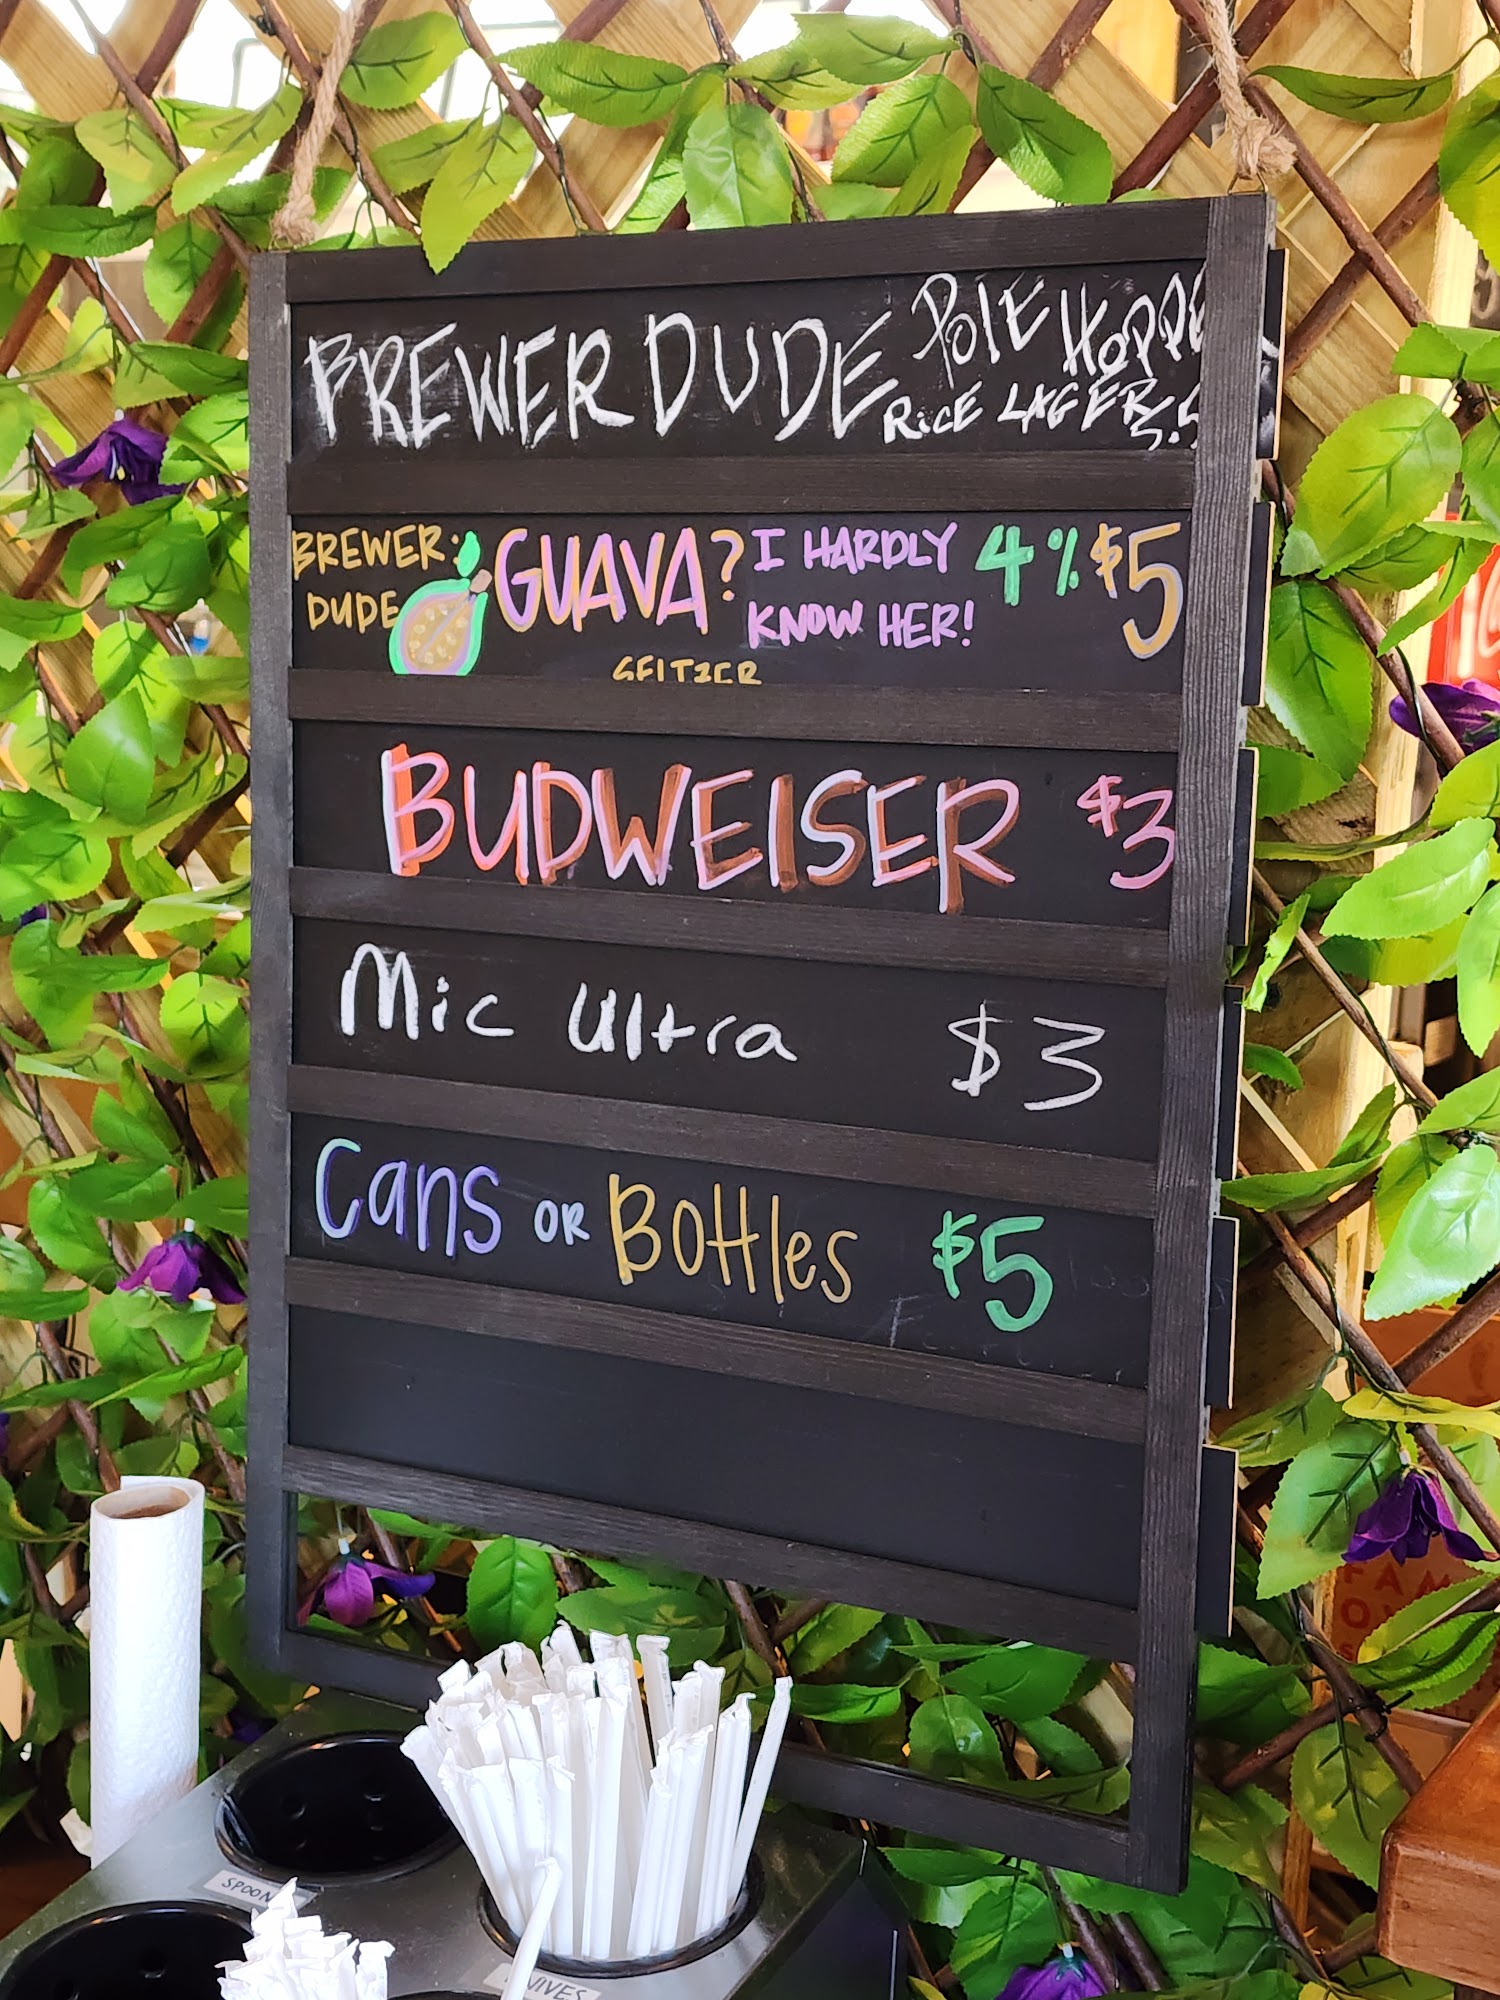 BREWER DUDE POLE HOPPE
RICE LAGER 5.5
BREWER: GUAVA? I HARDLY 4% $5
DUDE KNOW HER!
BUDWEISER $3
Mic Ultra $3
Cans OR Bottles $5
SPOON